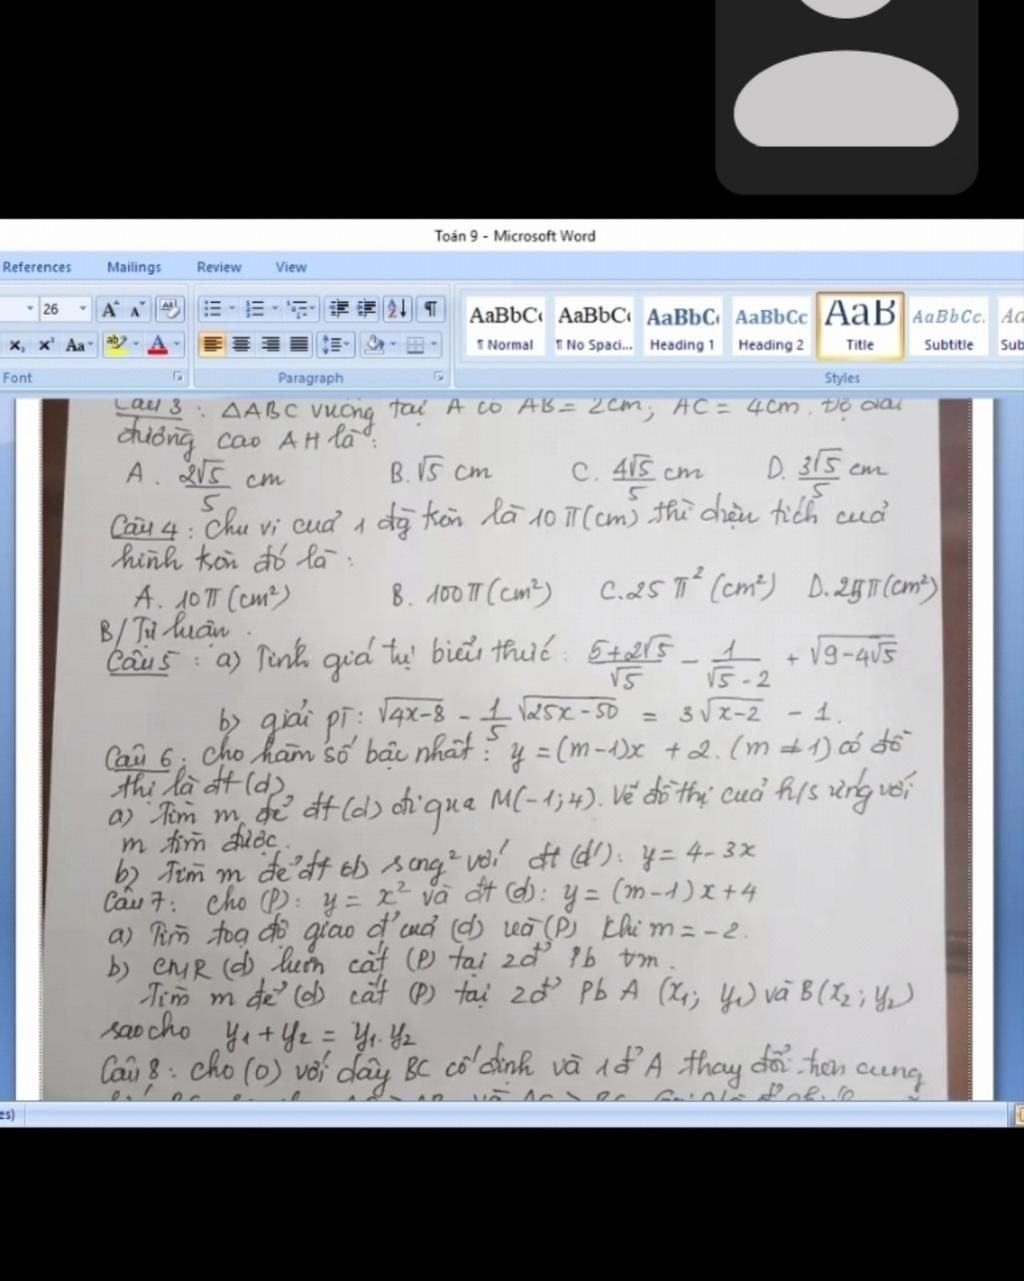 Toán 9 - Microsoft Word
References Mailings Review View
26 A A Aa A
AaBbC AaBbC AaBbC AaBbCc AaB AaBbCc.
¶ Normal ¶ No Spaci... Heading 1 Heading 2 Title Subtitle Sub
Font Paragraph Styles
Câu 3 : ΔABC vuông tại A có AB = 2cm, AC = 4cm. Độ dài
đường cao AH là :
A. 2√5/5 cm B. √5 cm C. 4√5/5 cm D. 3√5/5 cm
Câu 4 : Chu vi của 1 đg tròn là 10π (cm) thì diện tích của
hình tròn đó là :
A. 10π (cm²) B. 100π (cm²) C. 25π² (cm²) D. 25π (cm²)
B/ Tự luận.
Câu 5 : a) Tính giá trị biểu thức : (5+2√5)/√5 - 1/(√5-2) + √(9-4√5)
b) giải pt : √(4x-8) - 1/5 √(25x-50) = 3√(x-2) - 1.
Câu 6 : Cho hàm số bậc nhất : y = (m-1)x + 2. (m ≠ 1) có đồ
thị là đt (d)
a) Tìm m để đt (d) đi qua M(-1;4). Vẽ đồ thị của h/s ứng với
m tìm được.
b) Tìm m để đt (d) song² với đt (d'): y = 4-3x
Câu 7 : Cho (P): y = x² và đt (d): y = (m-1)x+4
a) Tìm toạ độ giao đ' của (d) và (P) khi m = -2.
b) CMR (d) luôn cắt (P) tại 2đ' Pb ∀m.
Tìm m để (d) cắt (P) tại 2đ' Pb A (x₁; y₁) và B(x₂; y₂)
sao cho y₁ + y₂ = y₁. y₂
Câu 8 : Cho (O) với dây BC cố định và 1đ' A thay đổi trên cung
es)